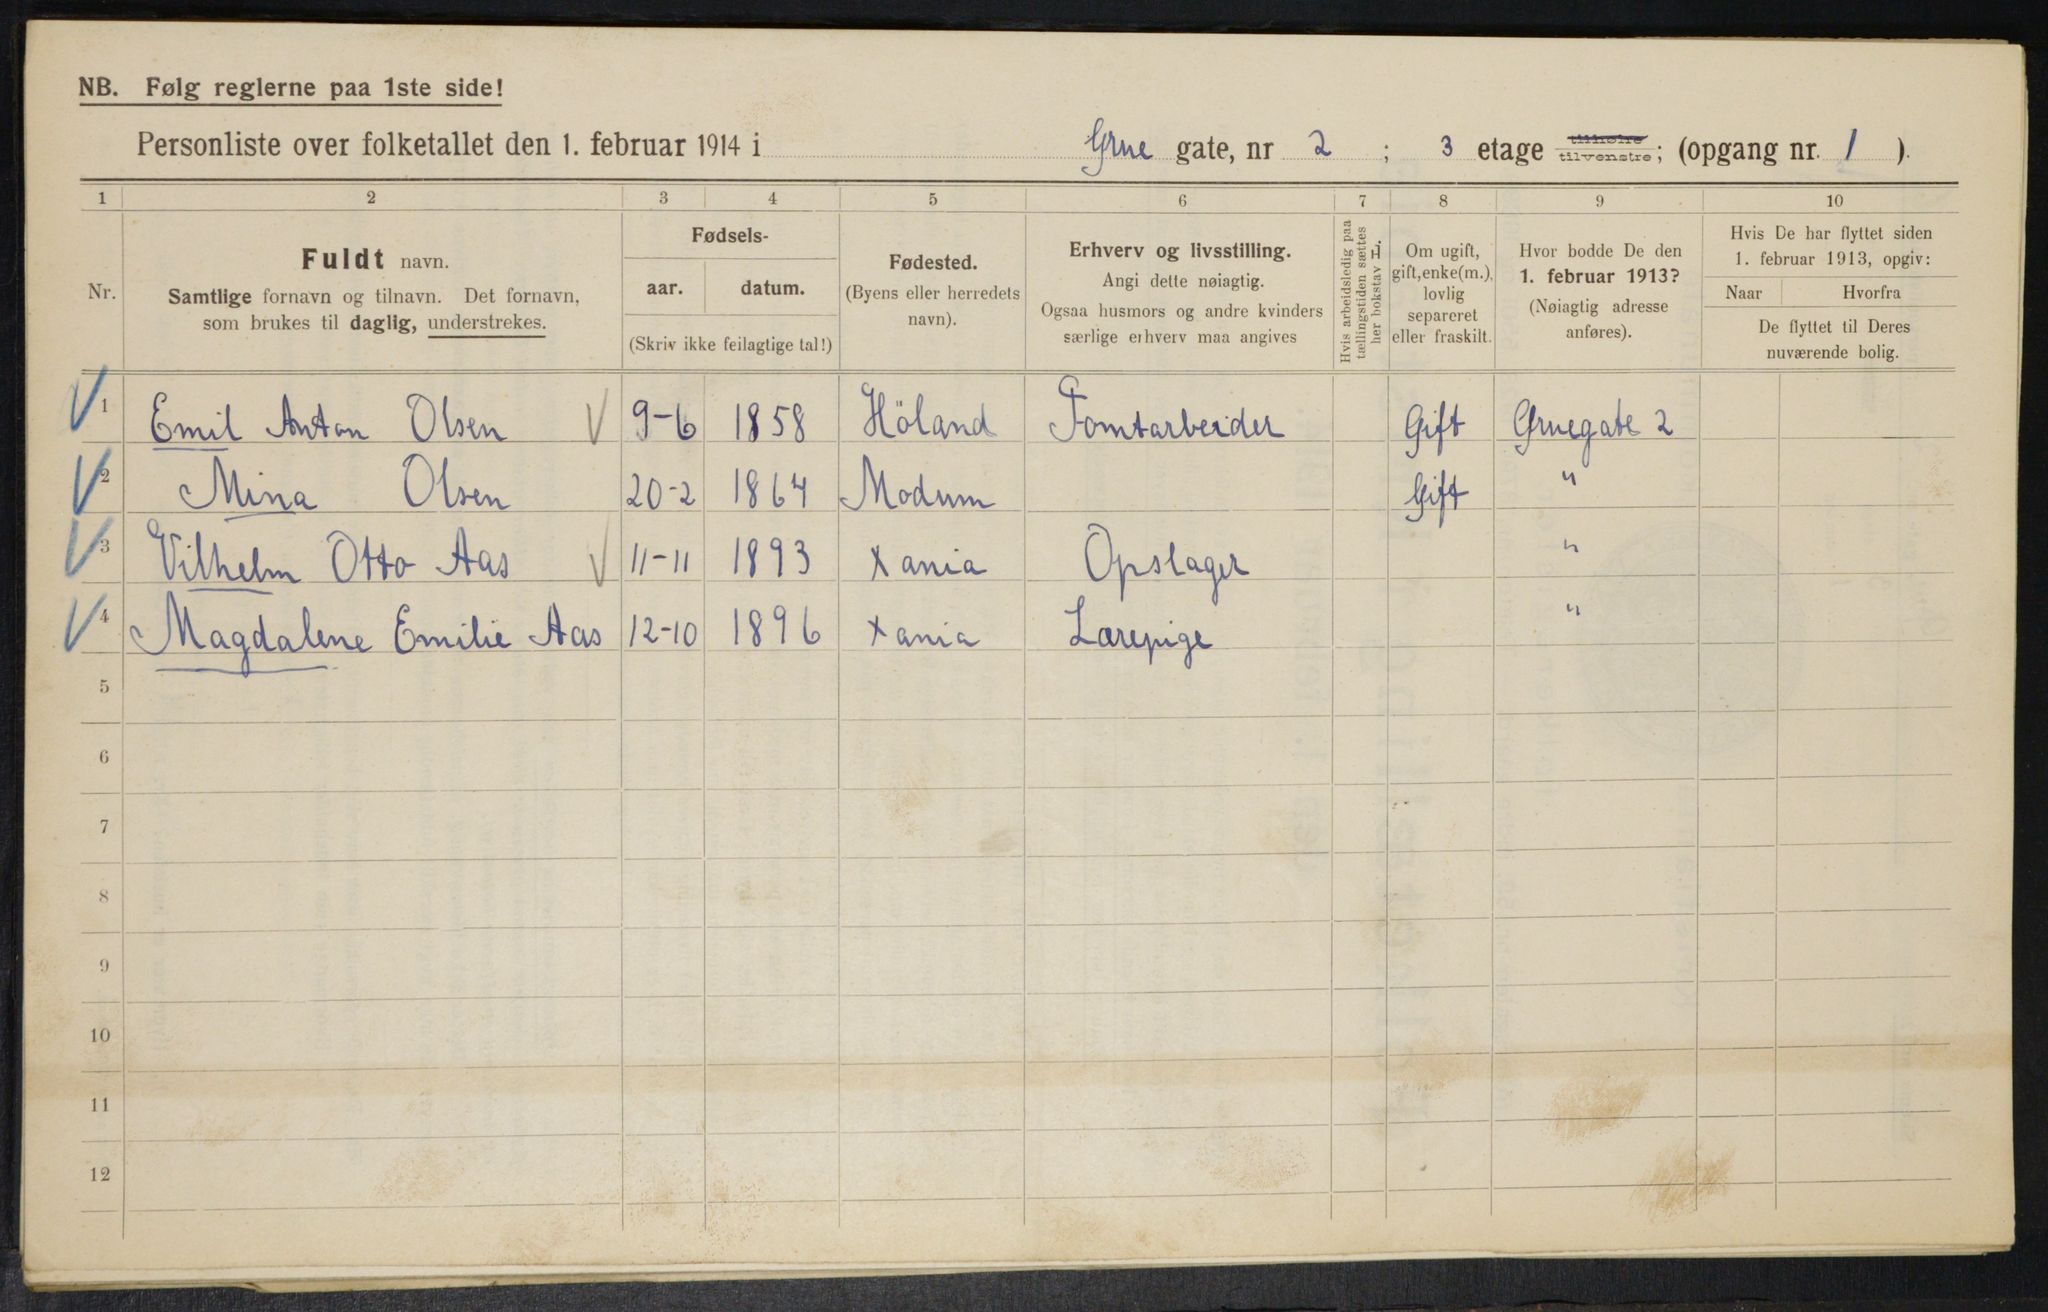 NB. Følg reglerne paa 1ste side!
Personliste over folketallet den 1. februar 1914 i Grue gate, nr 2 ; 3 etage tilhøire tilvenstre; (opgang nr. 1 ).
1 2 3 4 5 6 7 8 9 10
Nr.
Fuldt navn.
Samtlige fornavn og tilnavn. Det fornavn,
som brukes til daglig, understrekes.
Fødsels-
aar. datum.
(Skriv ikke feilagtige tal!)
Fødested.
(Byens eller herredets
navn).
Erhverv og livsstilling.
Angi dette nøiagtig.
Ogsaa husmors og andre kvinders
særlige erhverv maa angives
Hvis arbeidsledig paa
tællingstiden sættes
her bokstav L.
Om ugift,
gift, enke(m.),
lovlig
separeret
eller fraskilt.
Hvor bodde De den
1. februar 1913?
(Nøiagtig adresse
anføres).
Hvis De har flyttet siden
1. februar 1913, opgiv:
Naar Hvorfra
De flyttet til Deres
nuværende bolig.
1 Emil Anton Olsen 9-6 1858 Höland Tomtarbeider Gift Gruegate 2
2 Mina Olsen 20-2 1864 Modum Gift "
3 Vilhelm Otto Aas 11-11 1893 Xania Opslager "
4 Magdalene Emilie Aas 12-10 1896 Xania Lærepige "
5
6
7
8
9
10
11
12